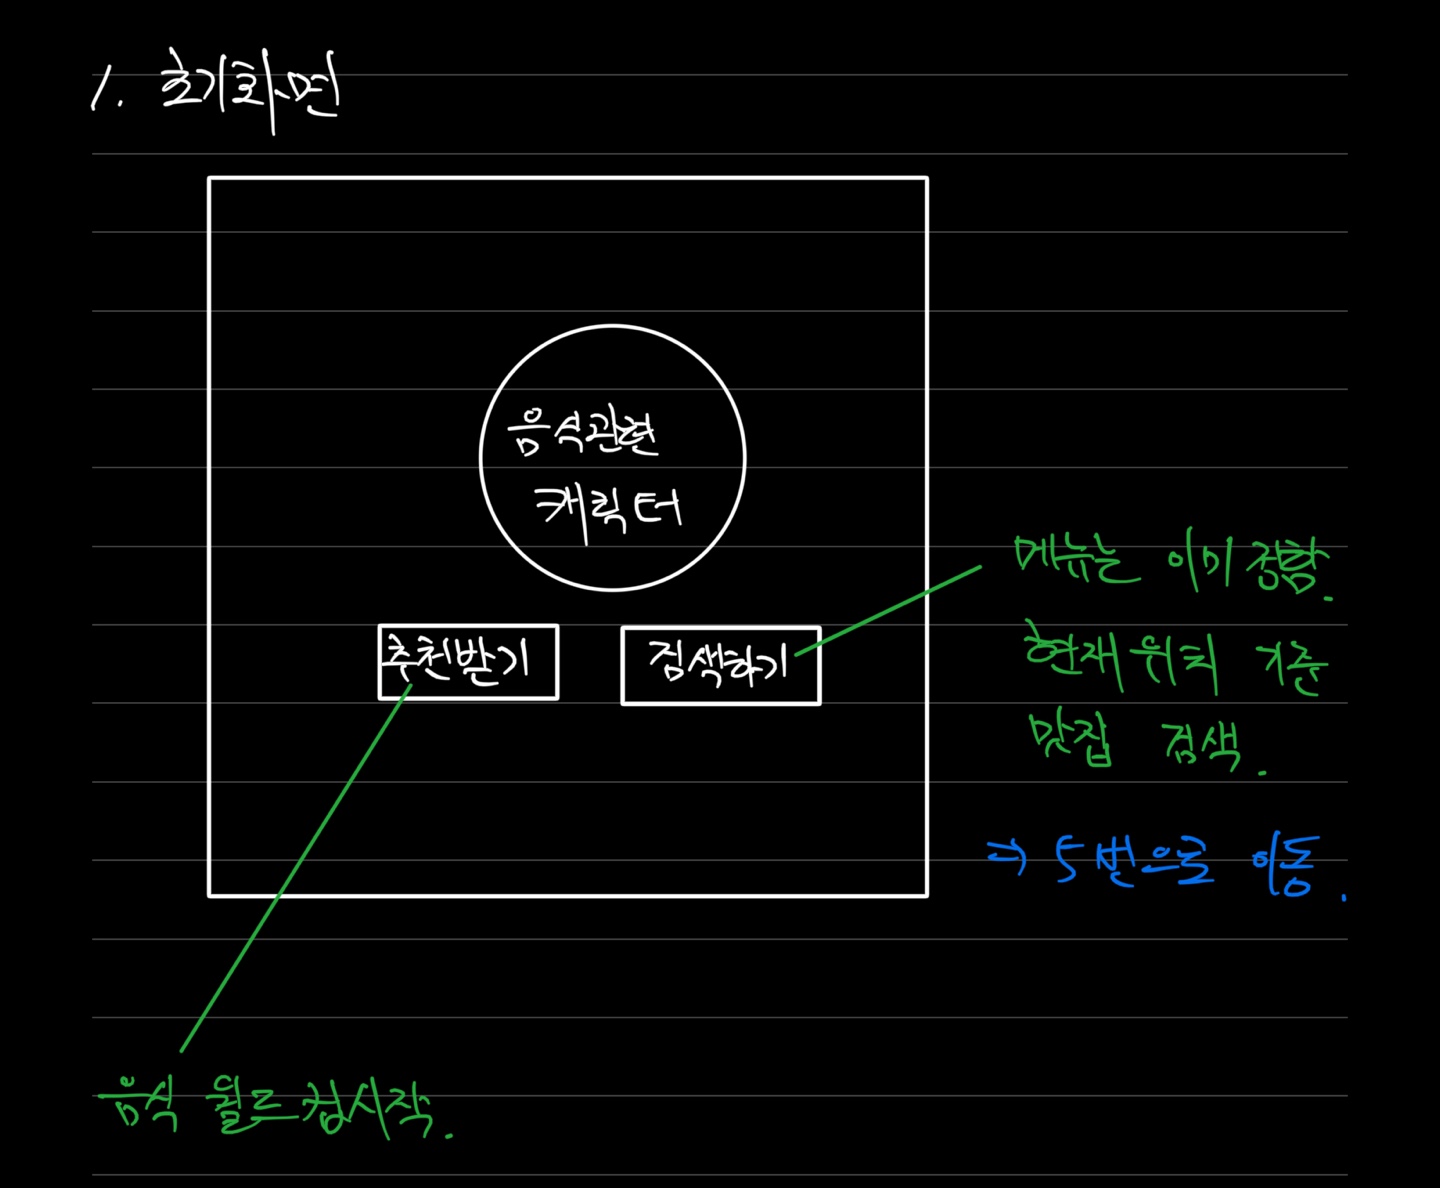 1. 초기화면
음식관련
캐릭터
추천받기
검색하기
메뉴는 이미 정함.
현재 위치 기준
맛집 검색.
→ 5번으로 이동.
음식 월드컵시작.